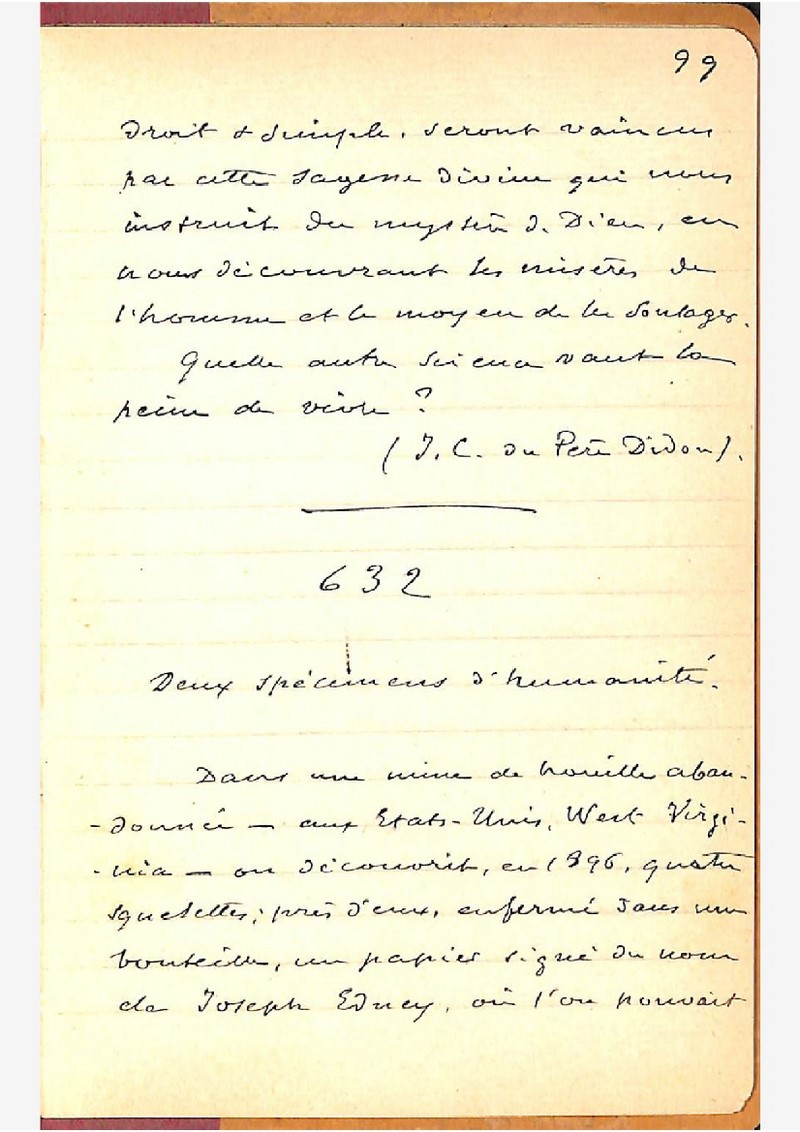 99
droit & simple, seront vaincus
par cette sagesse divine qui nous
instruit du mystère de Dieu, en
nous découvrant les misères de
l'homme et le moyen de les soulager.
Quelle autre science vaut la
peine de vivre ?
(J. C. du Père Didon).
632
Deux spécimens d'humanité.
Dans une mine de houille aban-
-donnée — aux Etats-Unis, West Virgi-
-nia — on découvrit, en 1896, quatre
squelettes ; près d'eux, enfermé dans une
bouteille, un papier signé du nom
de Joseph Edney, où l'on pouvait